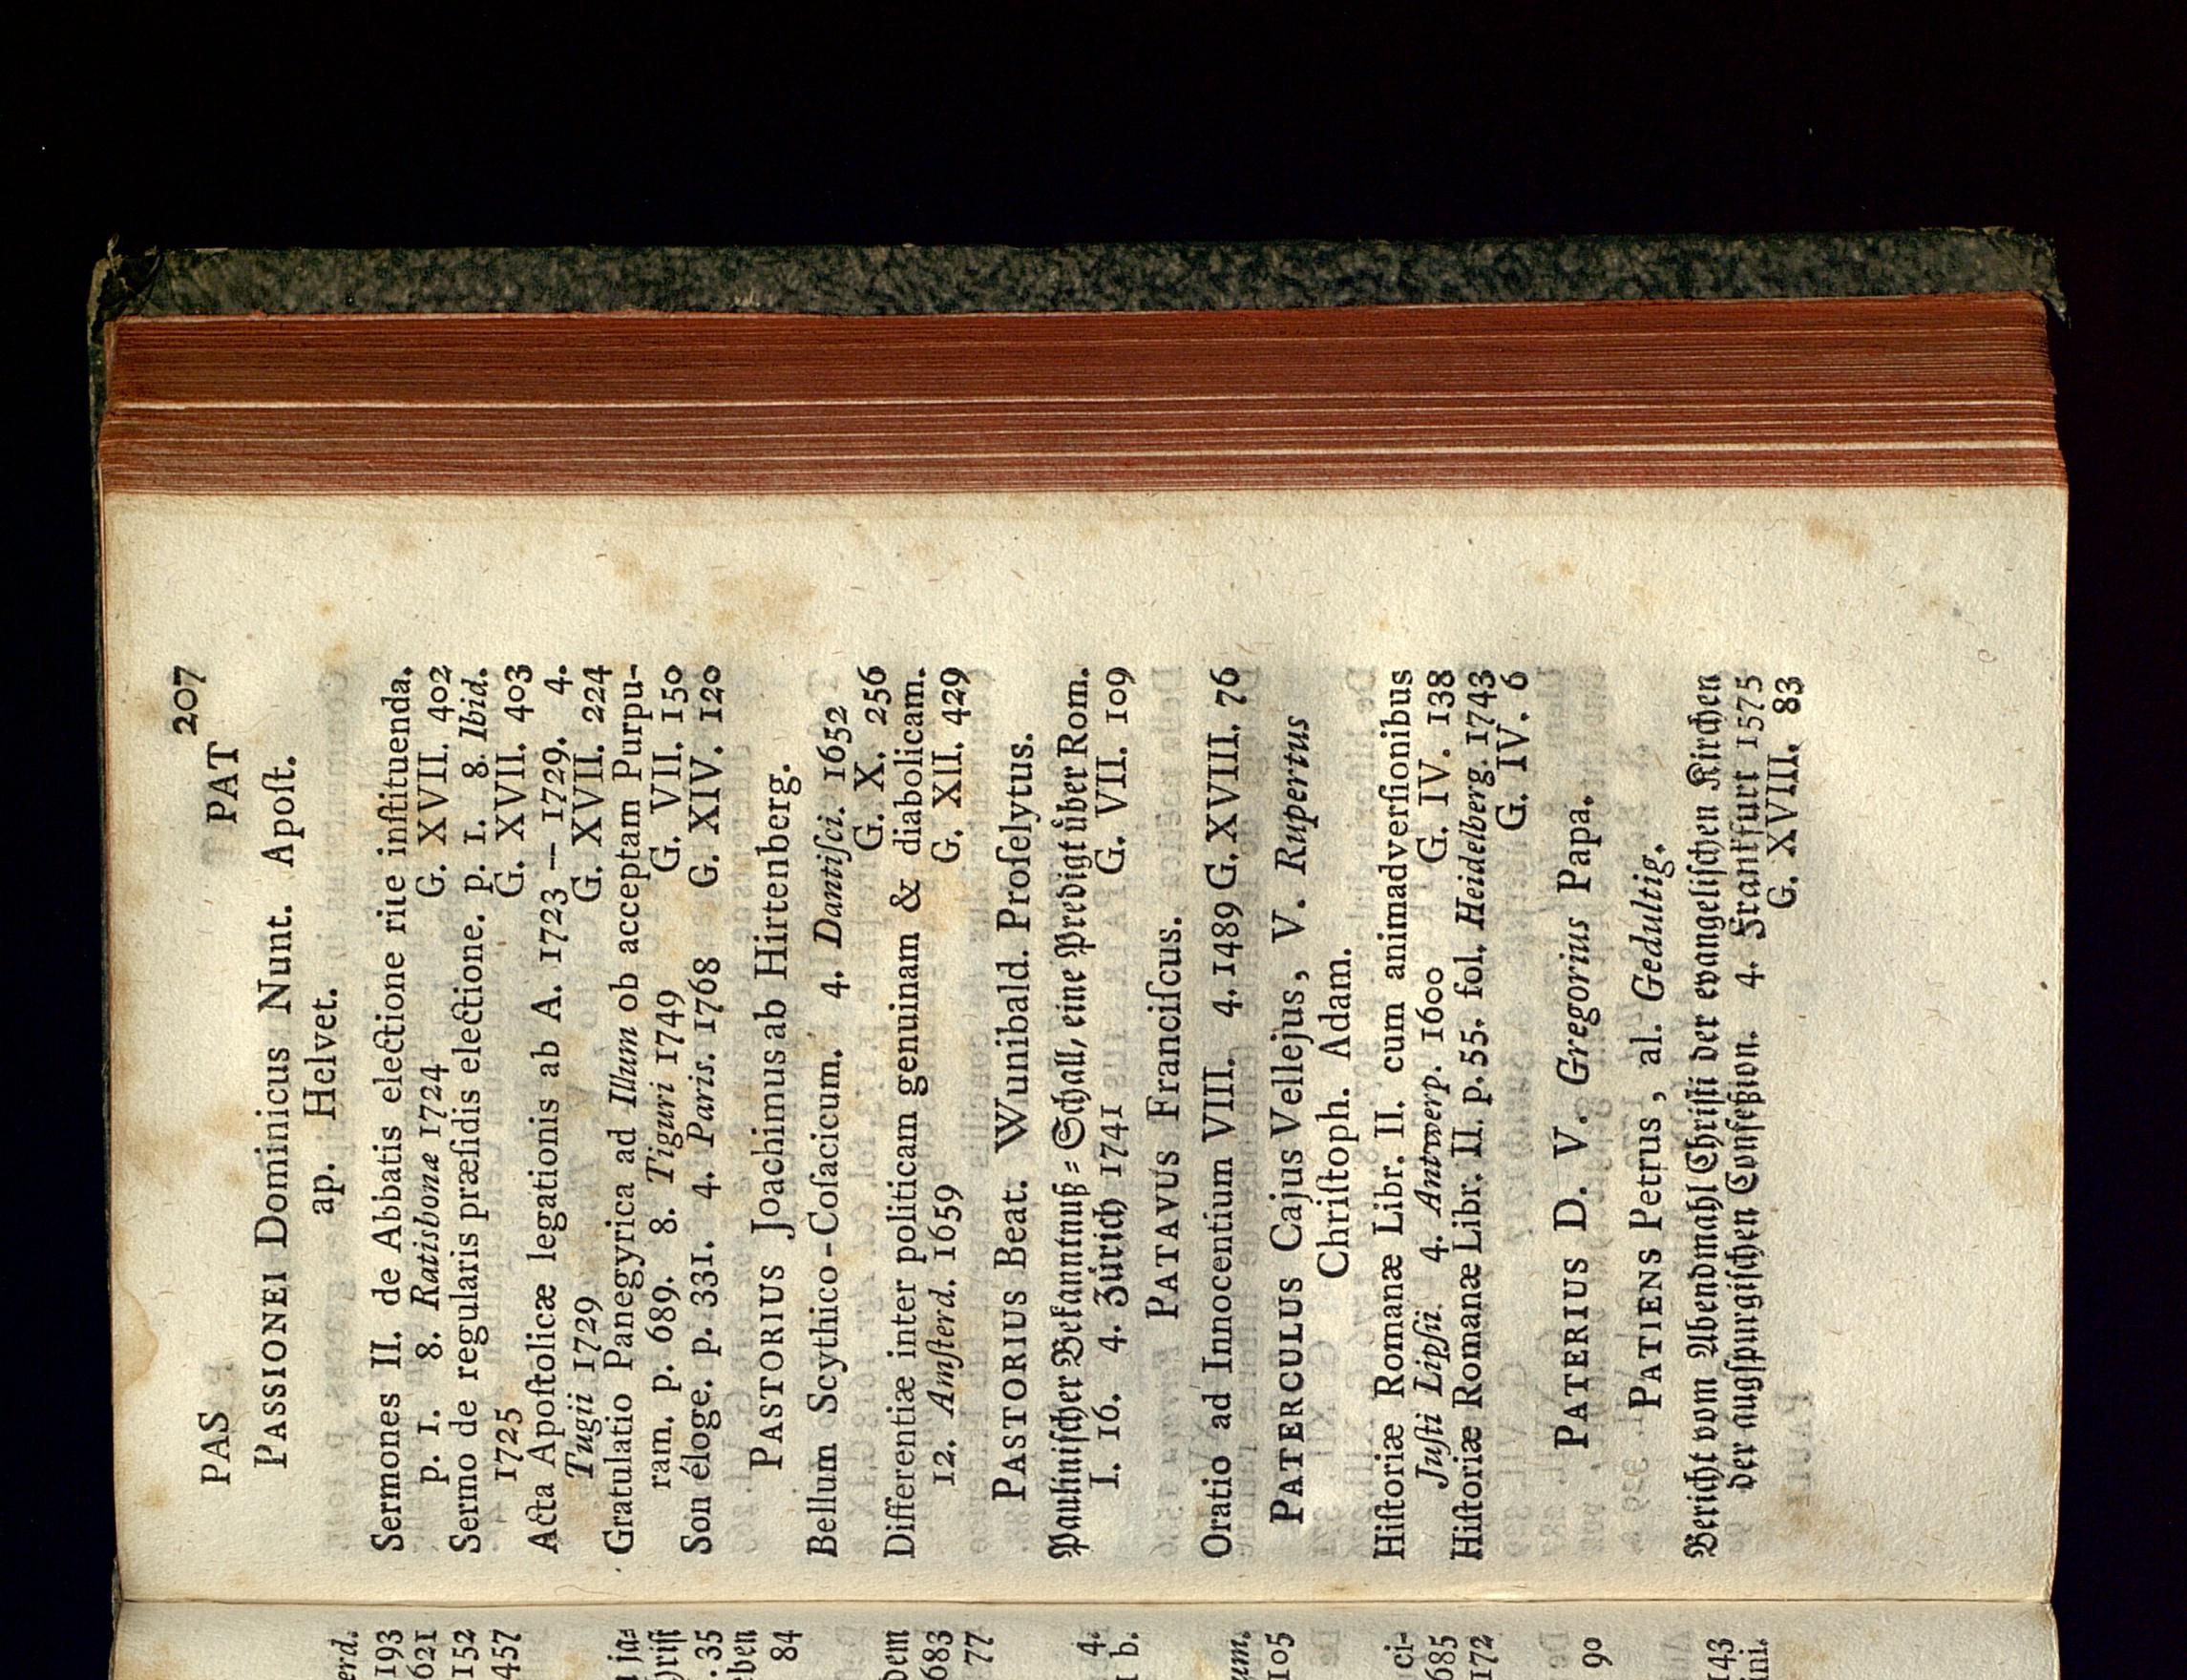 PAS PAT 207
PASSIONEI Dominicus Nunt. Apoſt.
ap. Helvet.
Sermones II. de Abbatis electione rite inſtituenda.
p. 1. 8. Ratisbonæ 1724 G. XVII. 402
Sermo de regularis præſidis electione. p. 1. 8. Ibid.
1725 G. XVII. 403
Acta Apoſtolicæ legationis ab A. 1723 – 1729. 4.
Tugii 1729 G. XVII. 224
Gratulatio Panegyrica ad Illum ob acceptam Purpu-
ram. p. 689. 8. Tiguri 1749 G. VII. 150
Son éloge. p. 331. 4. Paris. 1768 G. XIV. 120
PASTORIUS Joachimus ab Hirtenberg.
Bellum Scythico-Coſacicum. 4. Dantiſci. 1652
G. X. 256
Differentiæ inter politicam genuinam & diabolicam.
12. Amſterd. 1659 G. XII. 429
PASTORIUS Beat. Wunibald. Proſelytus.
Pauliniſcher Bekanntnuß-Schall, eine Predigt über Rom.
I. 16. 4. Zürich 1741 G. VII. 109
PATAVUS Franciſcus.
Oratio ad Innocentium VIII. 4. 1489 G. XVIII. 76
PATERCULUS Cajus Vellejus, V. Rupertus
Chriſtoph. Adam.
Hiſtoriæ Romanæ Libr. II. cum animadverſionibus
Juſti Lipſii. 4. Antwerp. 1600 G. IV. 138
Hiſtoriæ Romanæ Libr. II. p. 55. fol. Heidelberg. 1743
G. IV. 6
PATERIUS D. V. Gregorius Papa.
PATIENS Petrus, al. Gedultig.
Bericht vom Abendmahl Chriſti der evangeliſchen Kirchen
der augſpurgiſchen Confeßion. 4. Frankfurt 1575
G. XVIII. 83
erd.
193
621
152
457
ja-
hrift
. 35
eben
84
dem
683
77
4.
1 b.
um.
105
ci-
685
172
90
143
ini.